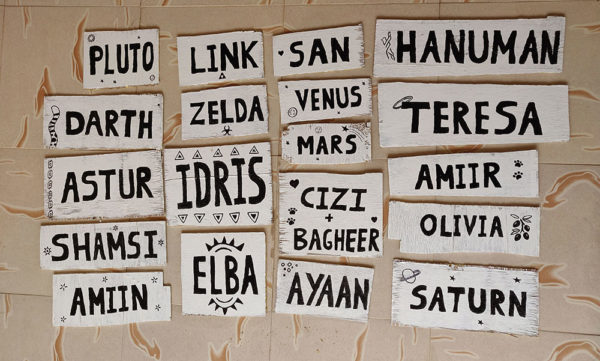 PLUTO
DARTH
ASTUR
SHAMSI
AMIIN
LINK
ZELDA
IDRIS
ELBA
SAN
VENUS
MARS
CIZI
+
BAGHEER
AYAAN
HANUMAN
TERESA
AMIIR
OLIVIA
SATURN